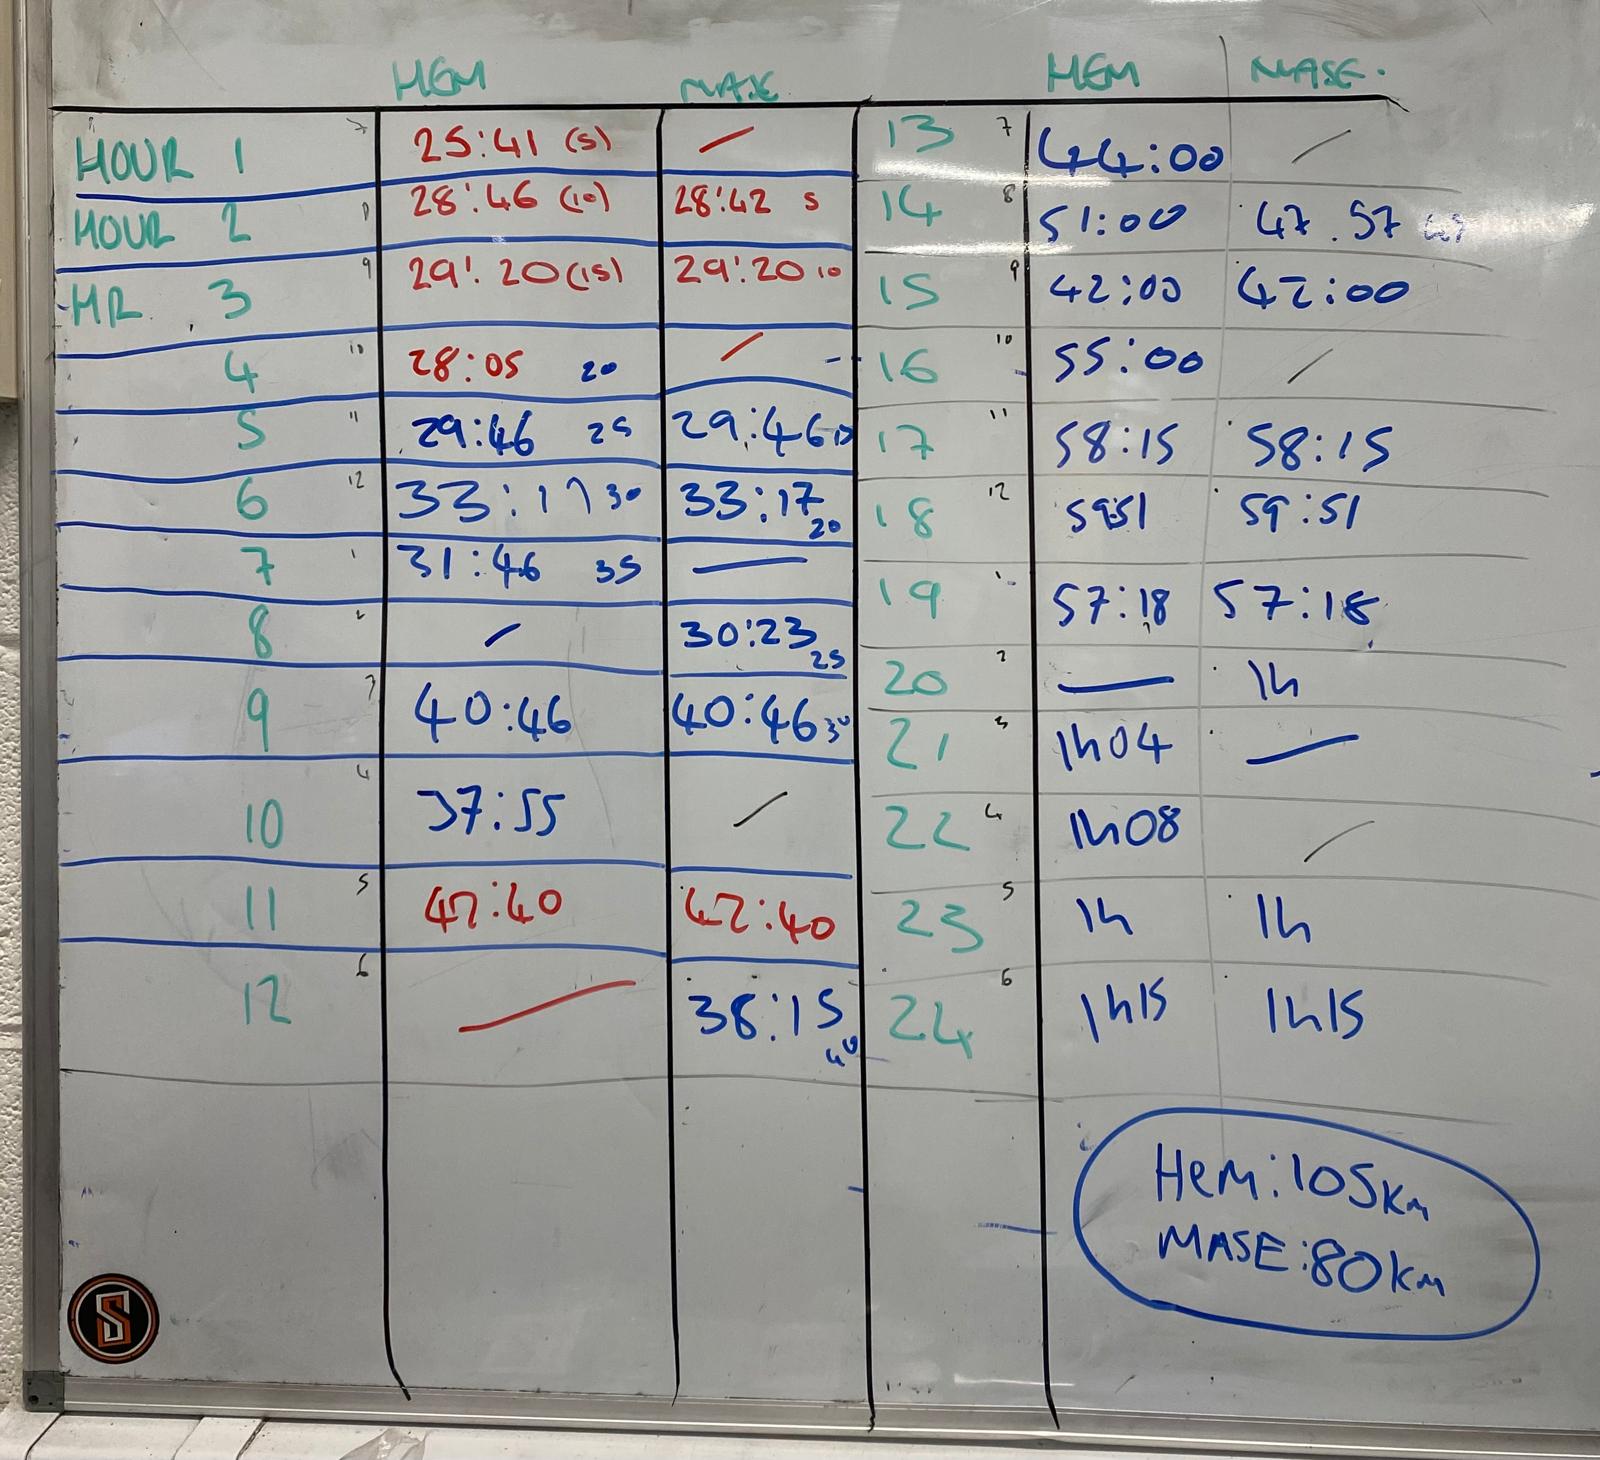 HEM MASE HEM MASE.
HOUR 1 7 25:41 (5) / 13 7 44:00 /
HOUR 2 8 28:46 (10) 28:42 5 14 8 51:00 47.57
HR 3 9 29:20 (15) 29:20 10 15 9 42:00 42:00
4 10 28:05 20 / 16 10 55:00 /
5 11 29:46 25 29:46 15 17 11 58:15 58:15
6 12 33:17 30 33:17 20 18 12 59:51 59:51
7 1 31:46 35 — 19 1 57:18 57:18
8 2 / 30:23 25 20 2 — 1h
9 3 40:46 40:46 30 21 3 1h04 —
10 4 37:55 / 22 4 1h08 /
11 5 42:40 42:40 23 5 1h 1h
12 6 / 38:15 40 24 6 1h15 1h15
Hem: 105km
MASE: 80km
S